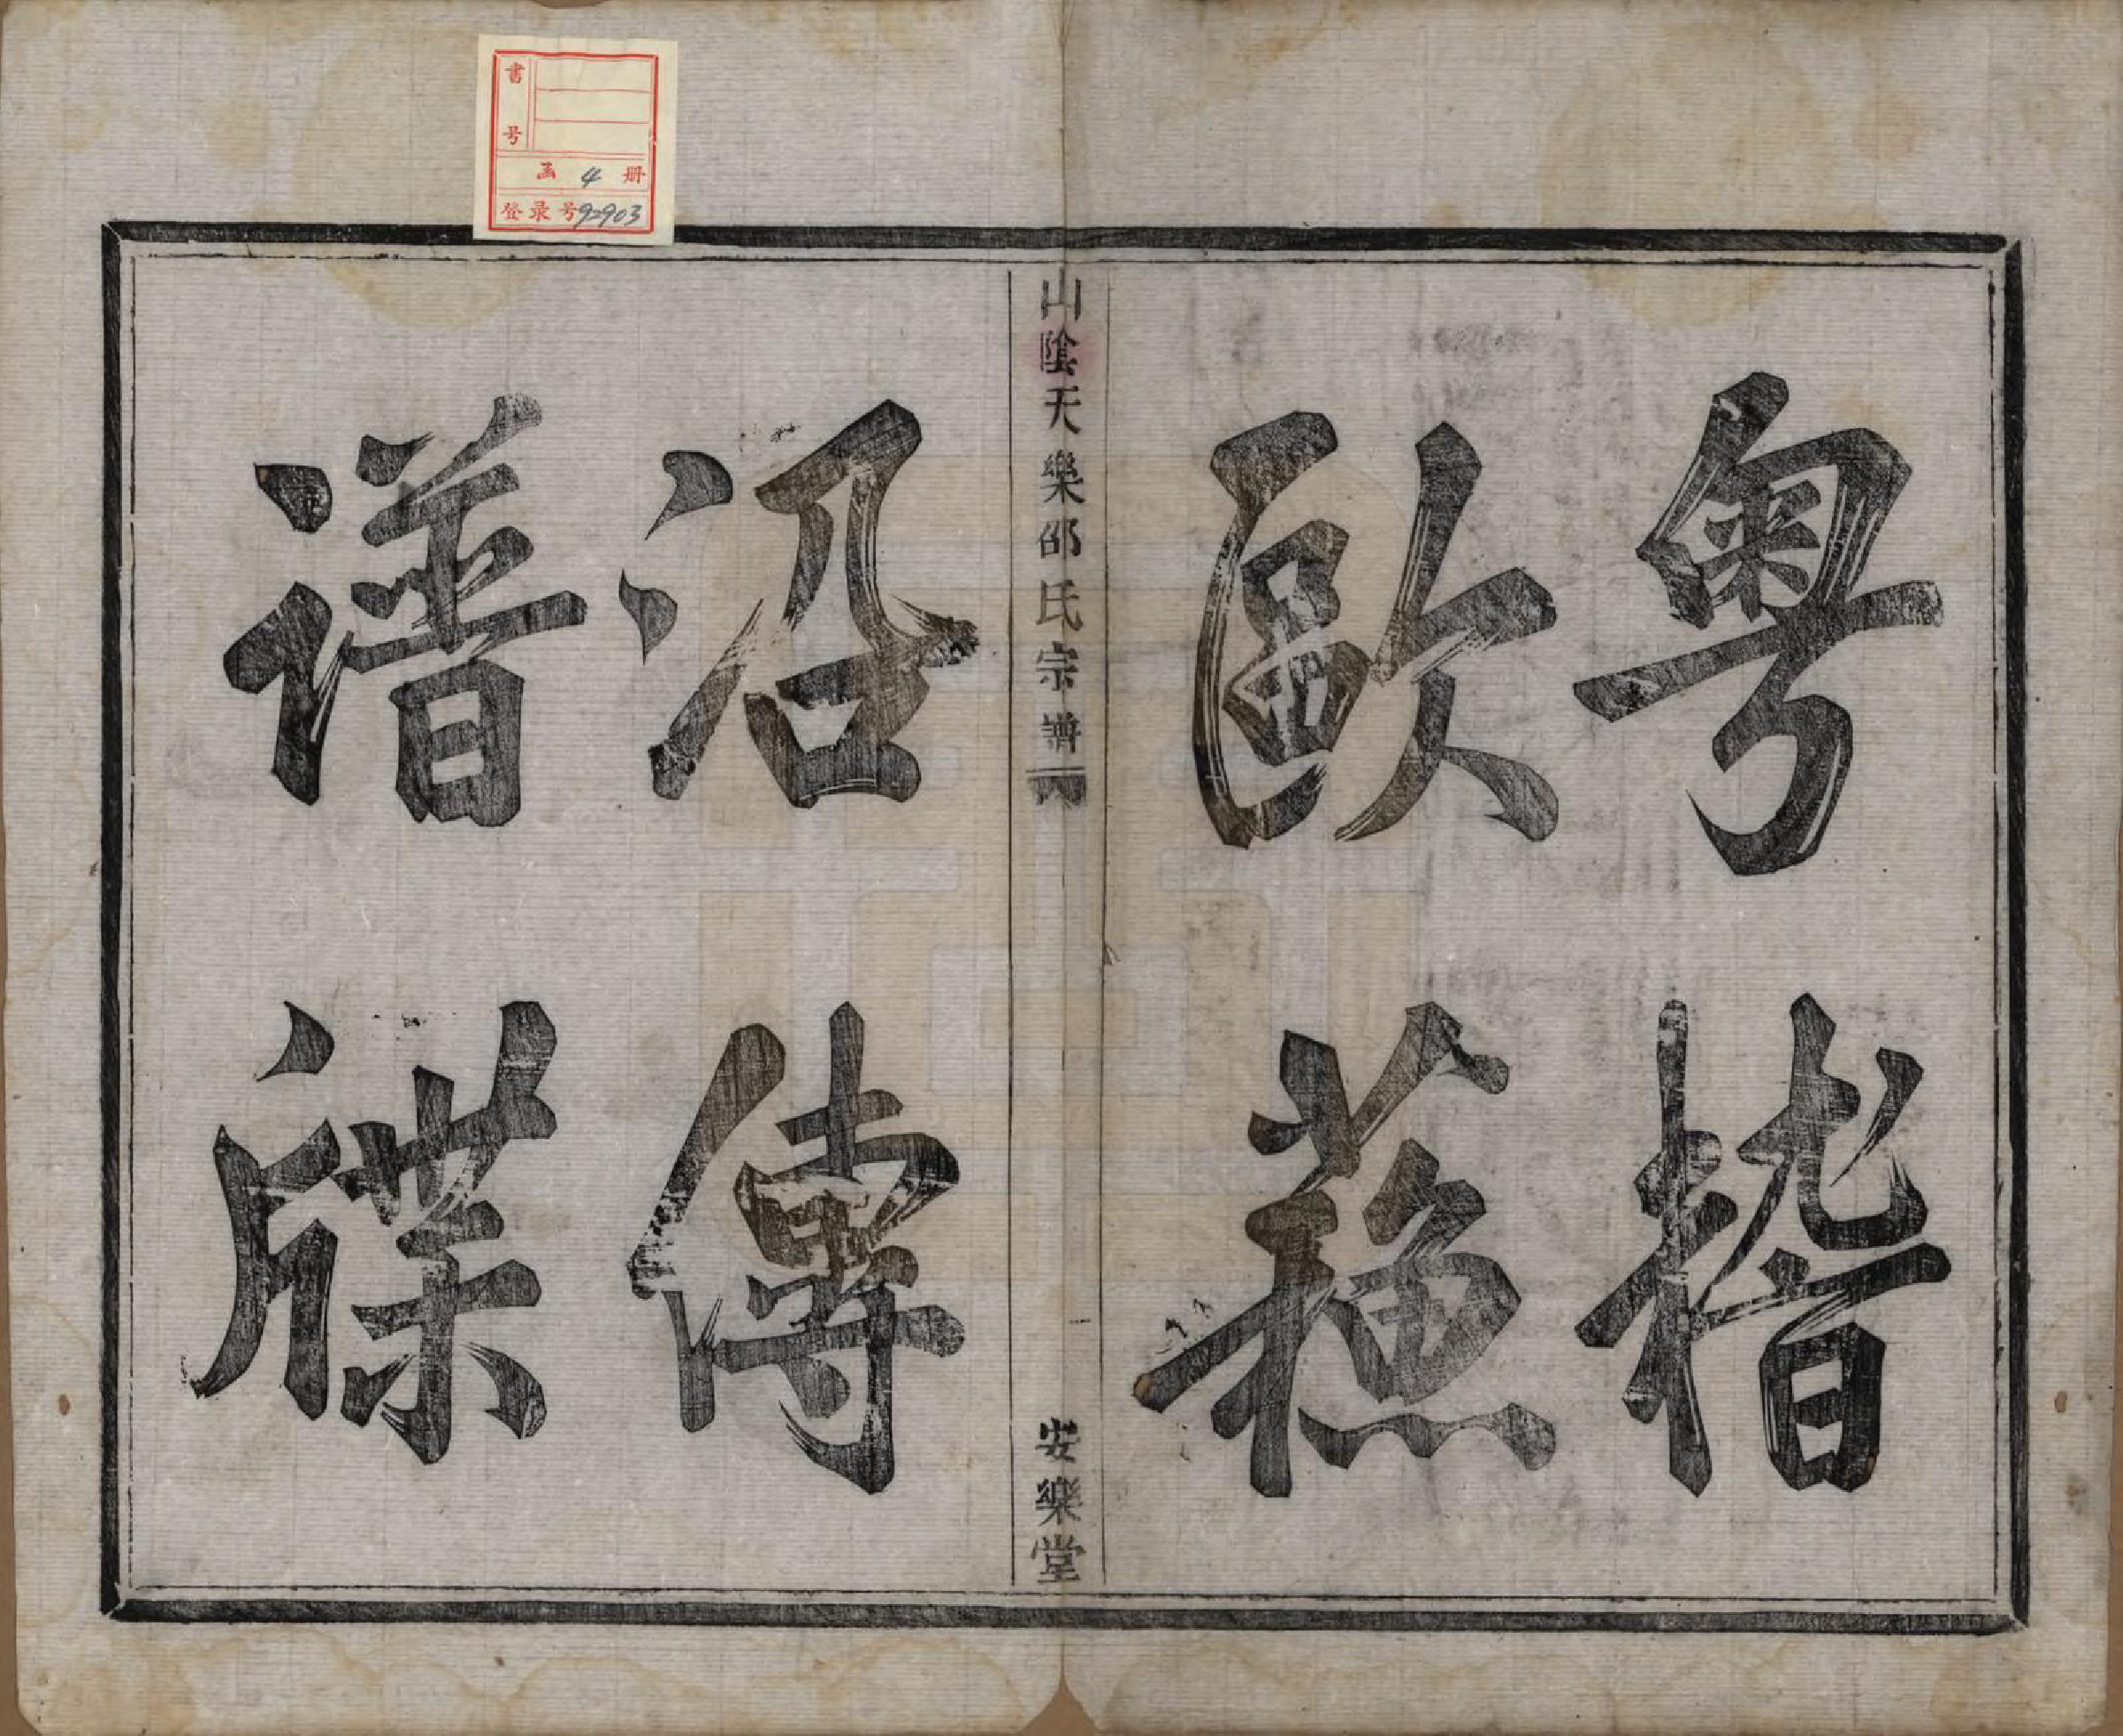 粤稽
歐蘓
山陰天樂邵氏宗譜
一
安樂堂
沿傳
譜牒
書号
函 4 册
登录号92903